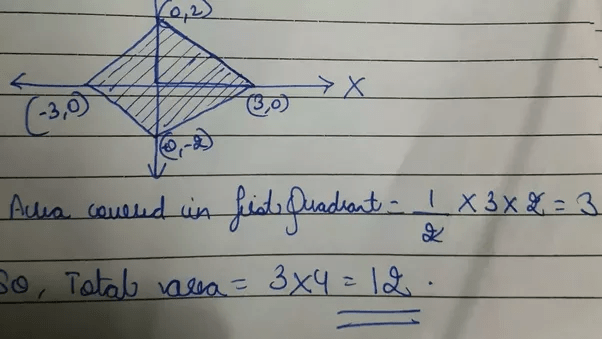 (0,2)
X
(-3,0)
(3,0)
(0,-2)
Area covered in first Quadrant = 1/2 × 3 × 2 = 3
So, Total area = 3×4 = 12.